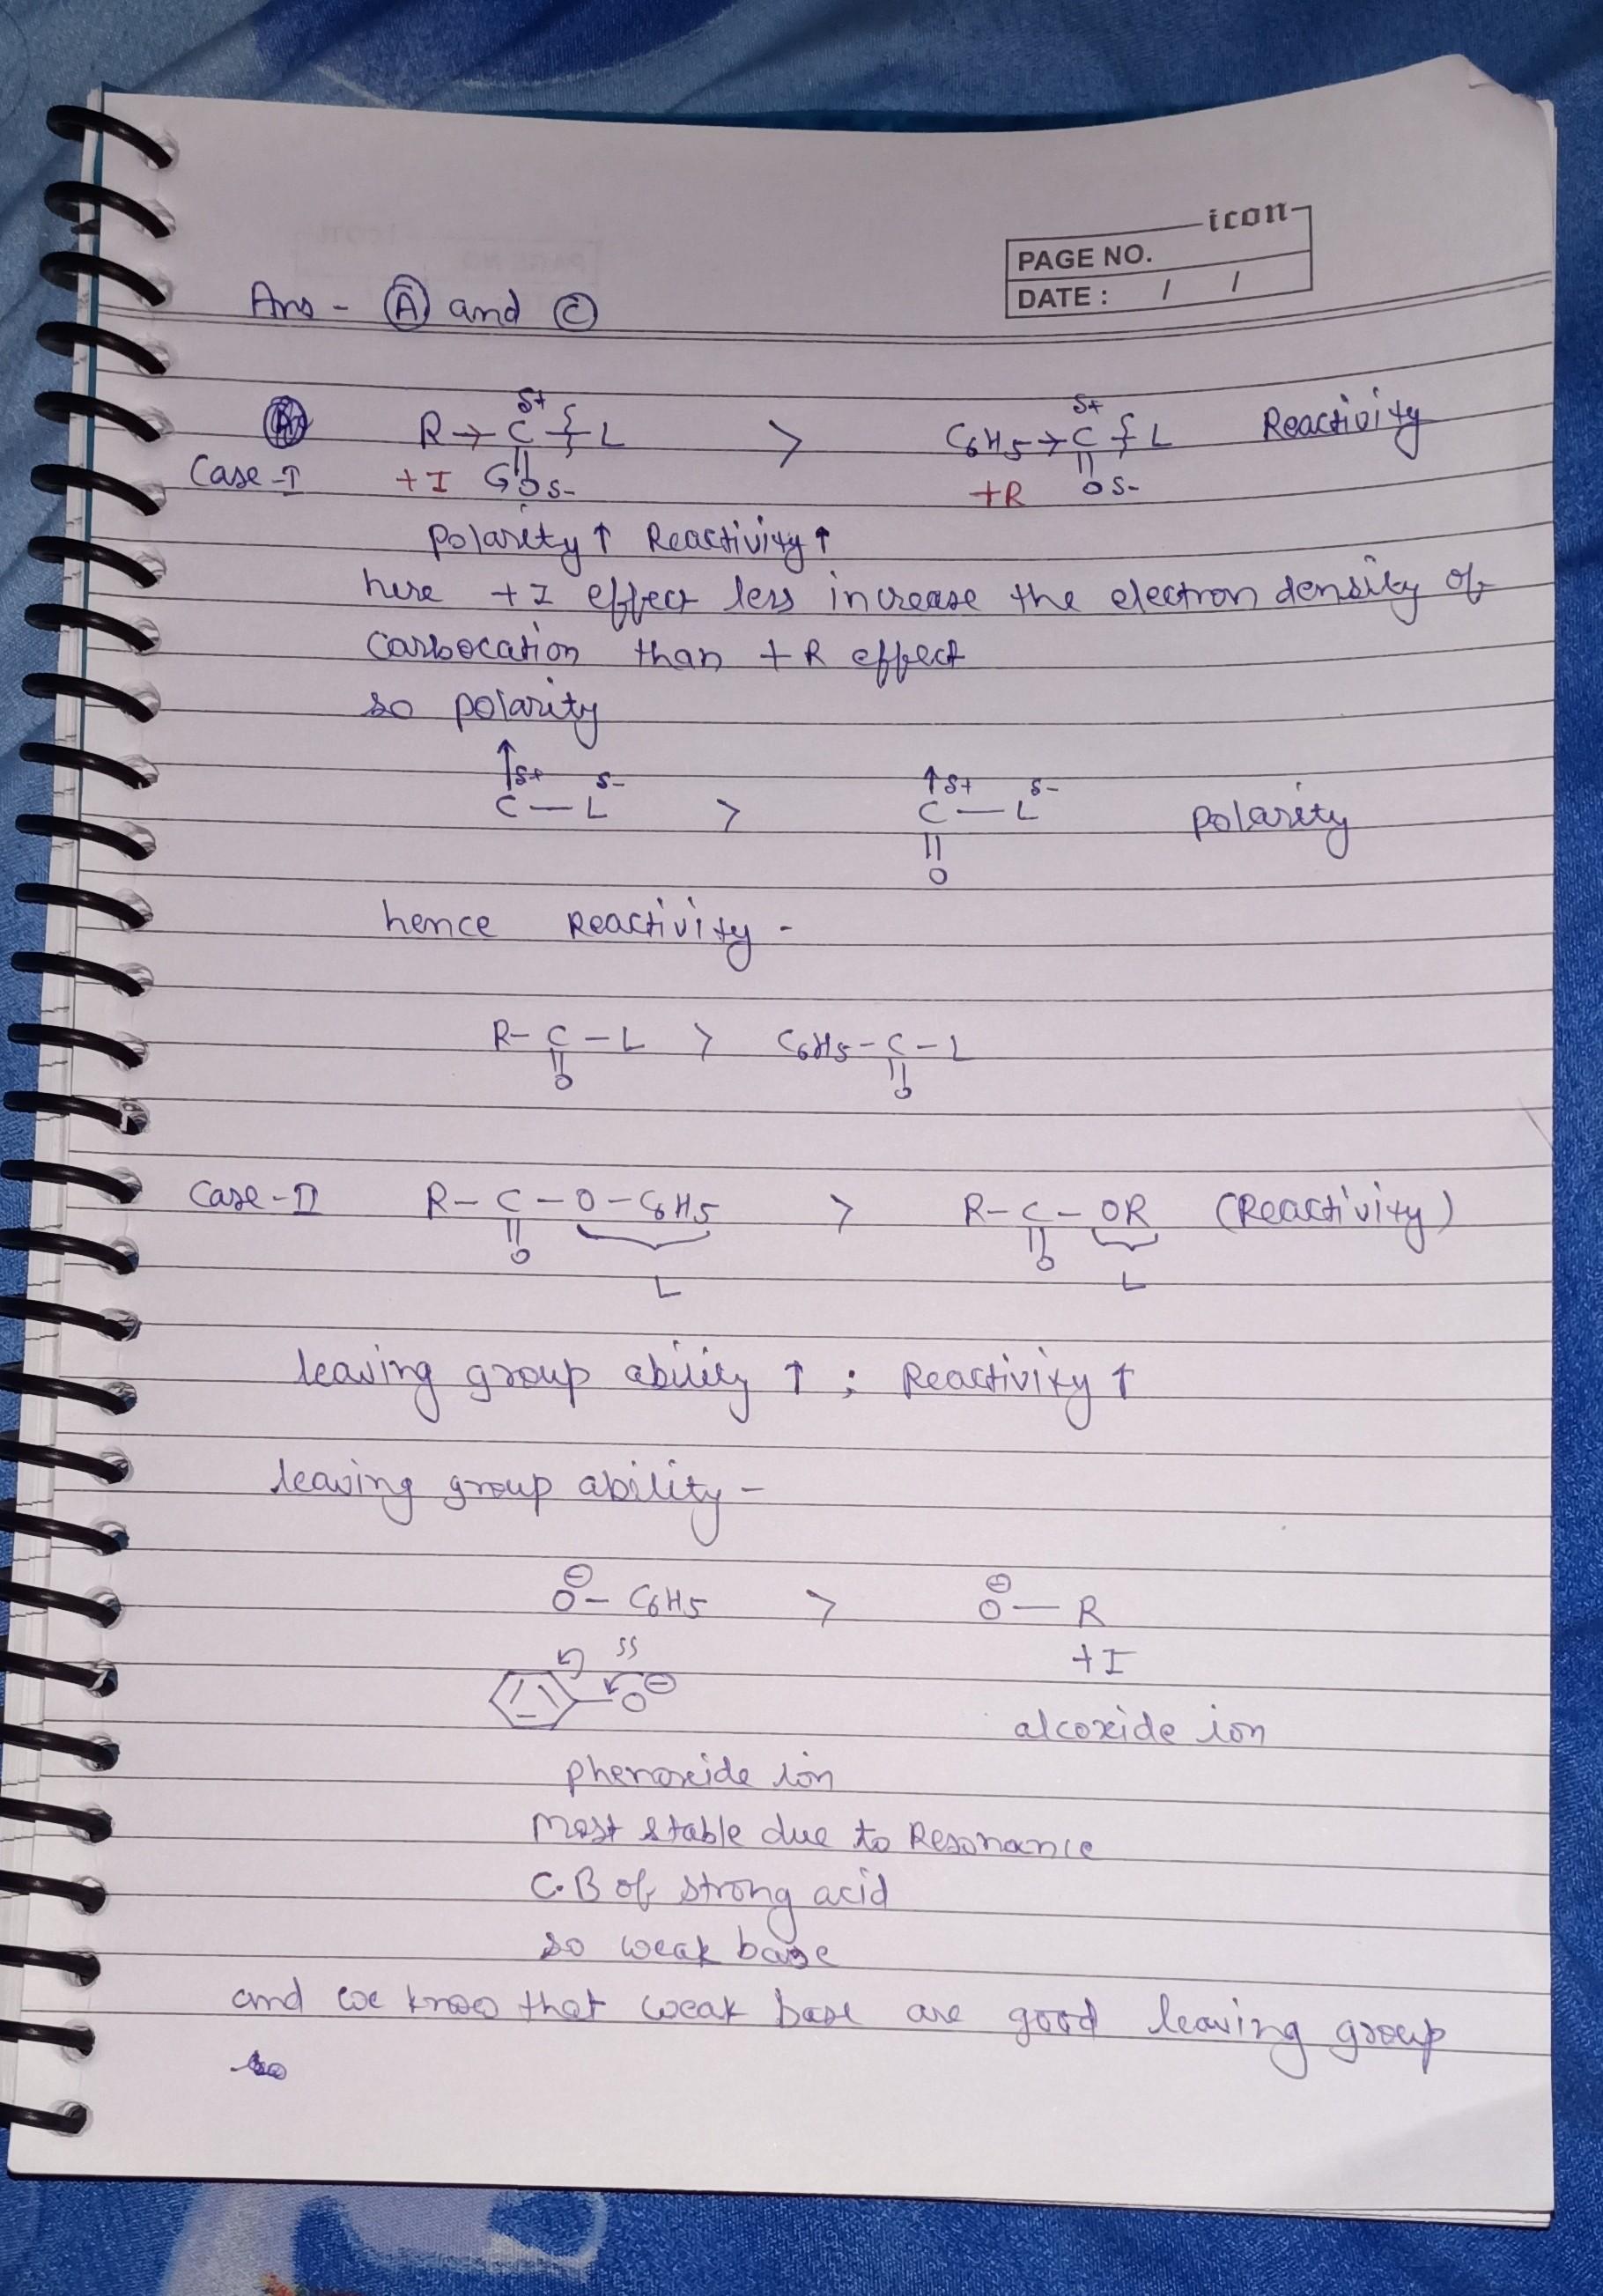 icon
PAGE NO.
DATE : / /
Ans - Ⓐ and Ⓒ
R → C δ+ L > C6H5 → C δ+ L Reactivity
Case - I +I O δ- +R O δ-
Polarity ↑ Reactivity ↑
here +I effect less increase the electron density of
carbocation than +R effect
so polarity
↑ δ+ δ- ↑ δ+ δ-
C — L > C — L Polarity
||
O
hence Reactivity -
R - C - L > C6H5 - C - L
|| ||
O O
Case - II R - C - O - C6H5 > R - C - OR (Reactivity)
|| ||
O O
L L
leaving group ability ↑ ; Reactivity ↑
leaving group ability -
⊖ ⊖
O - C6H5 > O — R
+I
O ⊖
alcoxide ion
phenoxide ion
Most stable due to Resonance
C.B of strong acid
so weak base
and we know that weak base are good leaving group
so